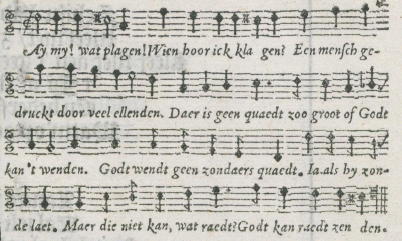 Ay my! wat plagen! Wien hoor ick kla gen? Een mensch ge-
druckt door veel ellenden. Daer is geen quaedt zoo groot of Godt
kan't wenden. Godt wendt geen zondaers quaedt. Ia als hy zon-
de laet. Maer die niet kan, wat raedt? Godt kan raedt zen den.